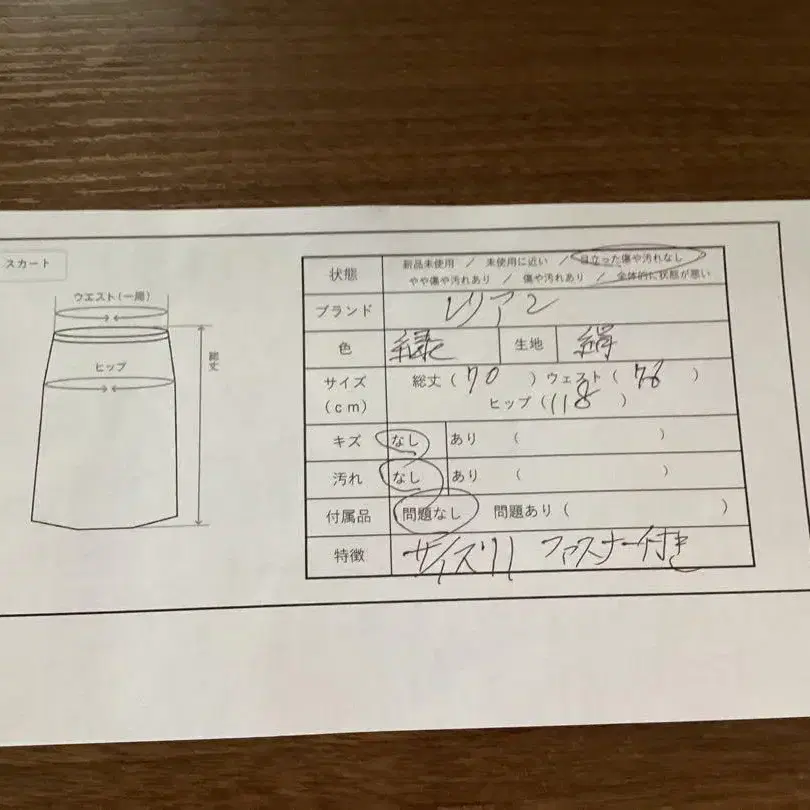 スカート
ウエスト(一周)
ヒップ
総丈
状態 新品未使用 / 未使用に近い / 目立った傷や汚れなし
やや傷や汚れあり / 傷や汚れあり / 全体的に状態が悪い
ブランド レリアン
色 緑 生地 絹
サイズ (cm) 総丈 ( 70 ) ウエスト ( 76 )
ヒップ (118 )
キズ なし あり ( )
汚れ なし あり ( )
付属品 問題なし 問題あり ( )
特徴 ファスナー付き